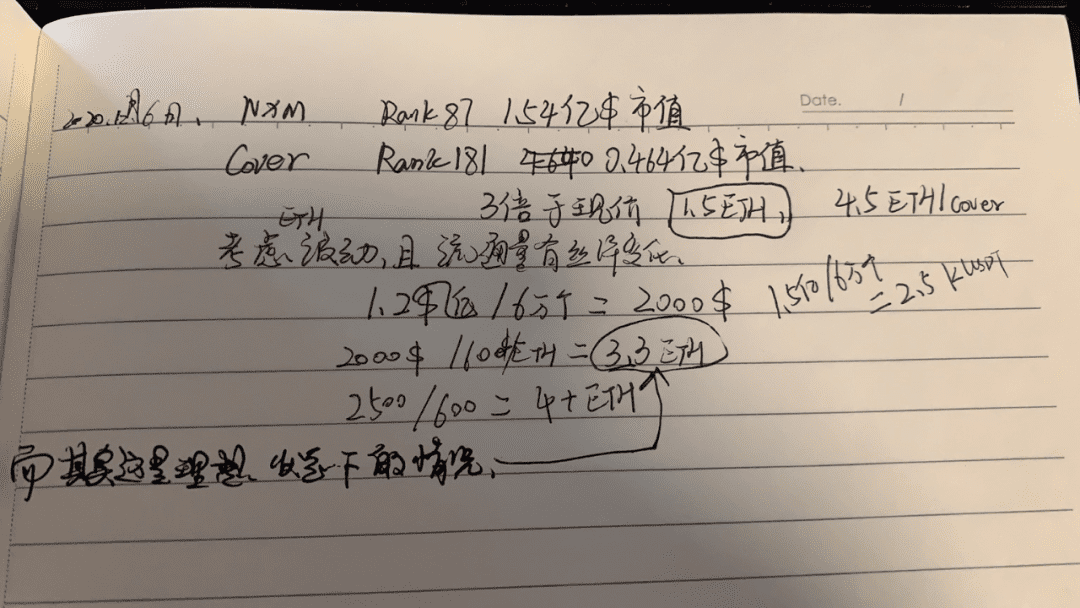 Date. /
2020.12月6日. NXM Rank87 1.54亿$市值
Cover Rank181 0.464亿$市值.
3倍于现价 1.5ETH, 4.5ETH/cover
ETH
考虑波动,且流通量有些许变化.
1.2$亿/6万个=2000$ 1.5亿/6万个
=2.5KUSDT
2000$/600$/ETH=3.3ETH
2500/600=4+ETH
而其实这是理想状态下的情况.